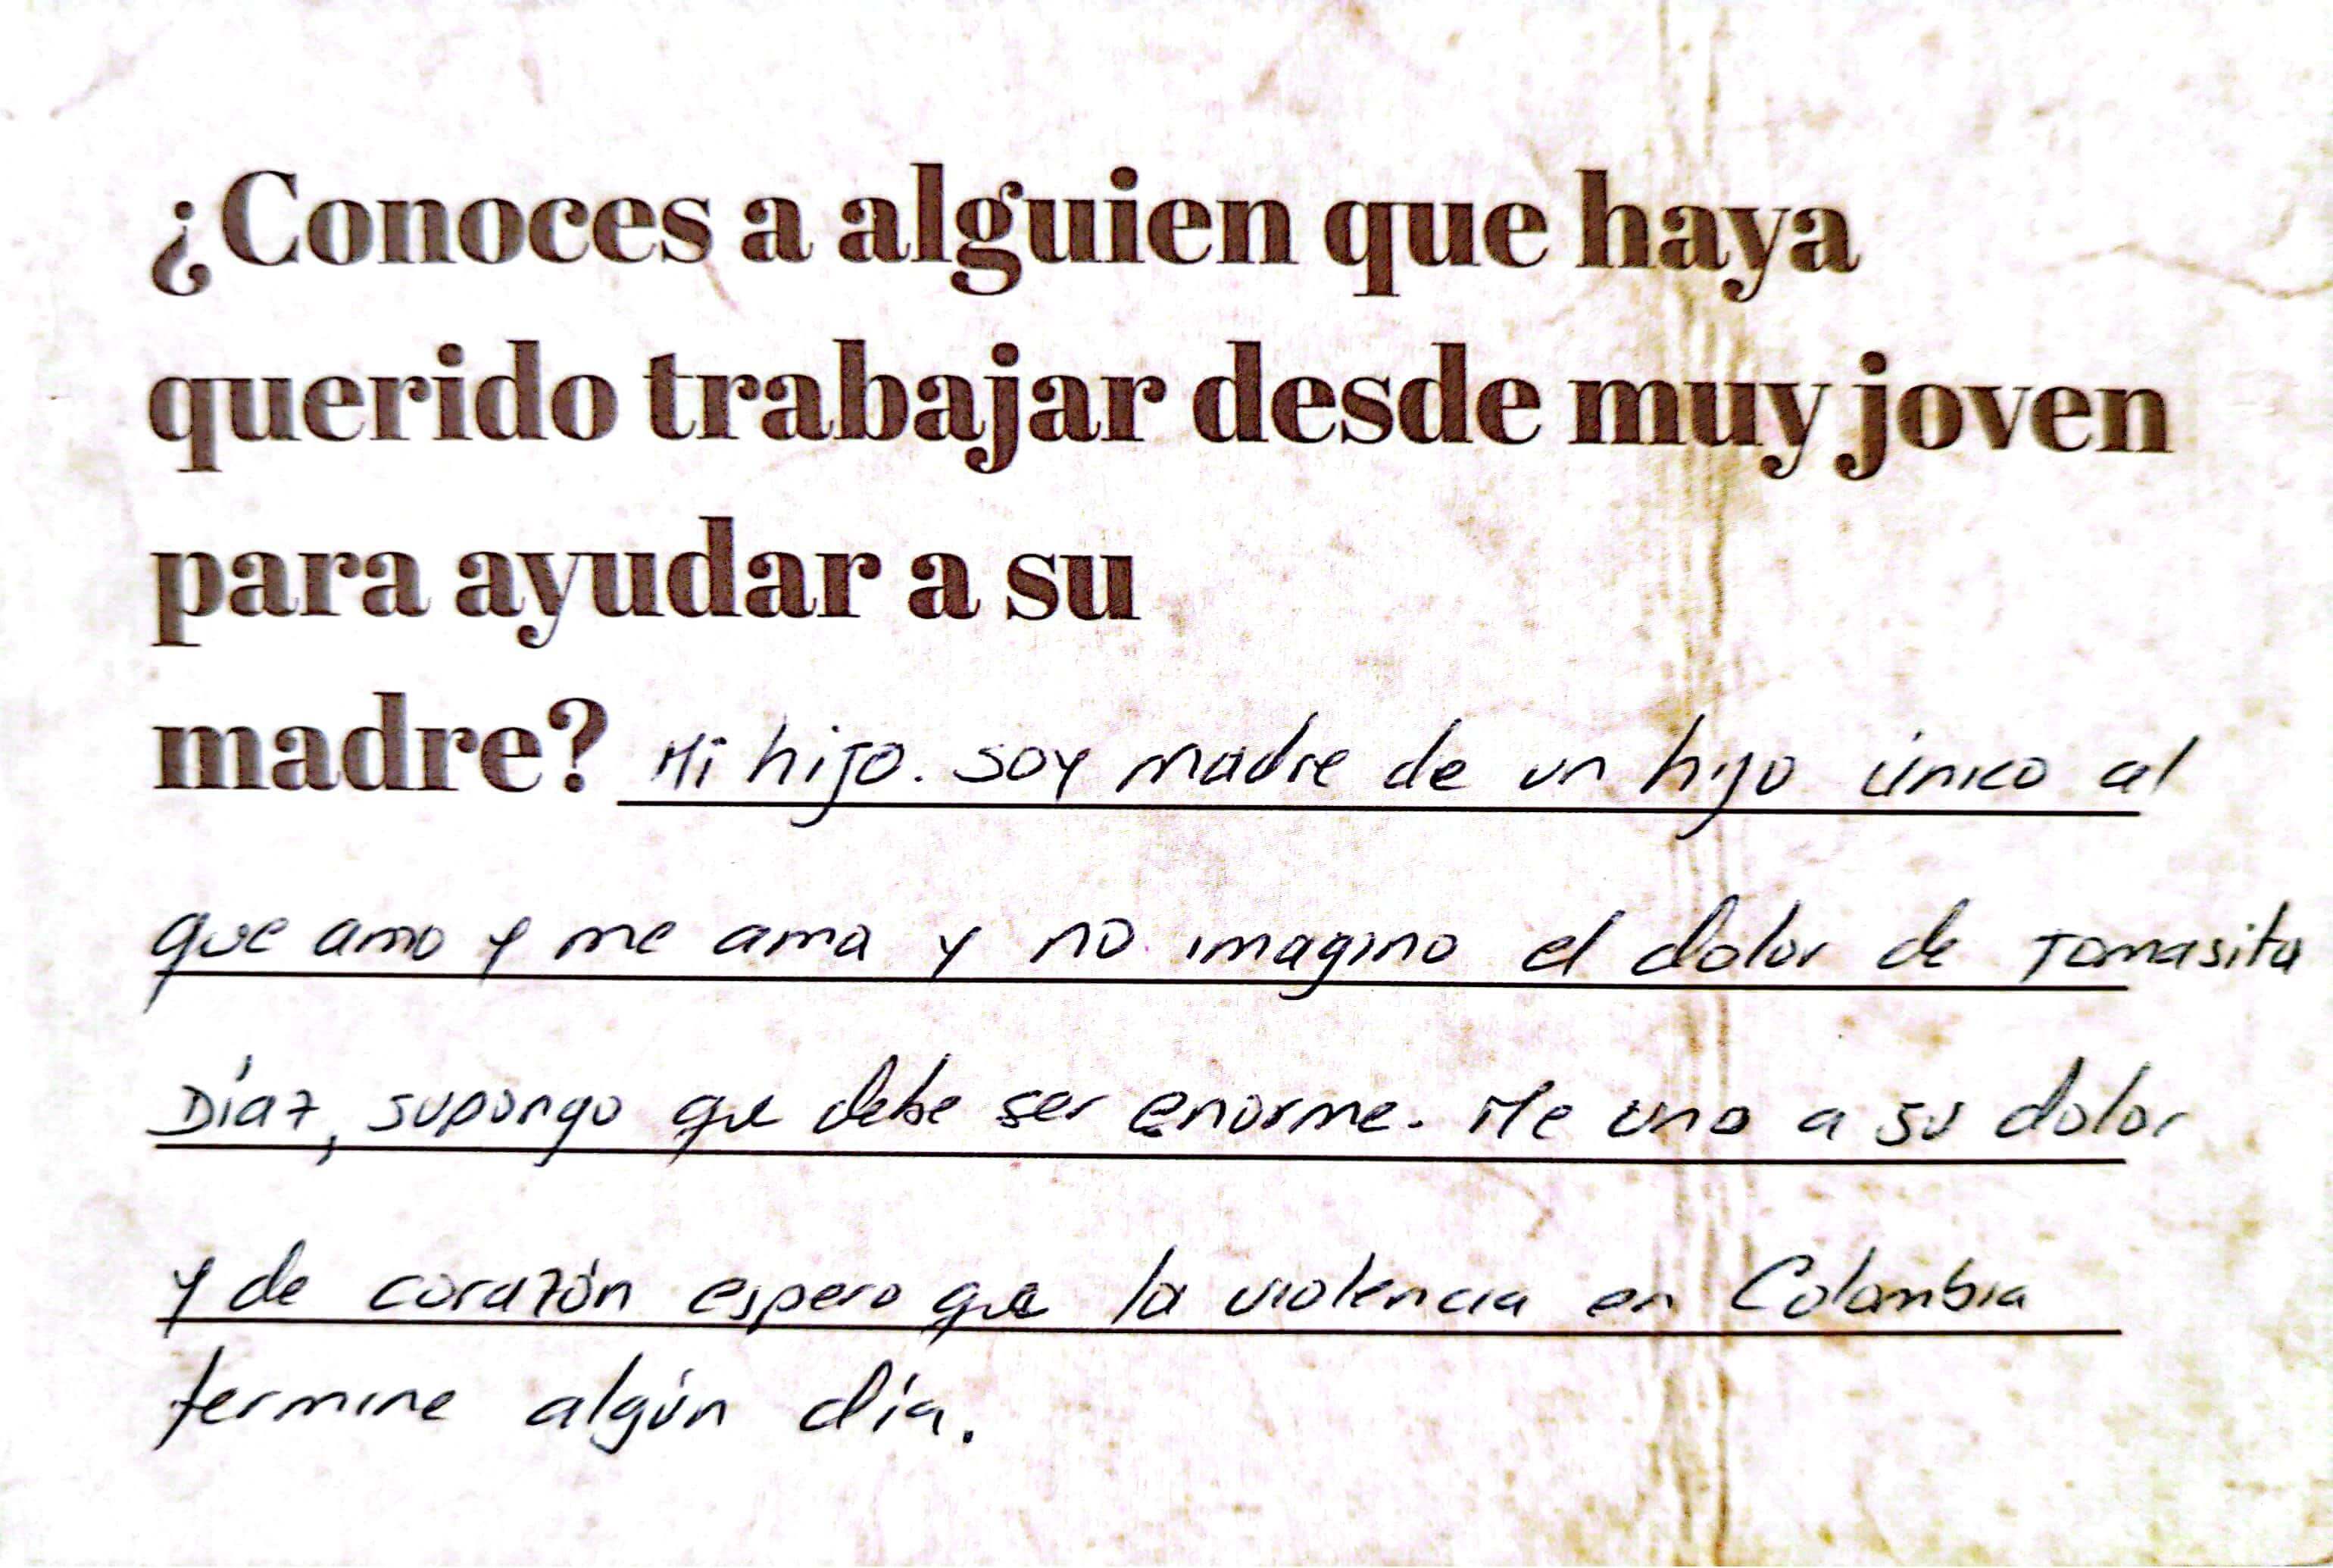 ¿Conoces a alguien que haya
querido trabajar desde muy joven
para ayudar a su
madre? Mi hijo. Soy madre de un hijo único al
que amo y me ama y no imagino el dolor de Tomasita
Díaz, supongo que debe ser enorme. Me uno a su dolor
y de corazón espero que la violencia en Colombia
termine algún día.